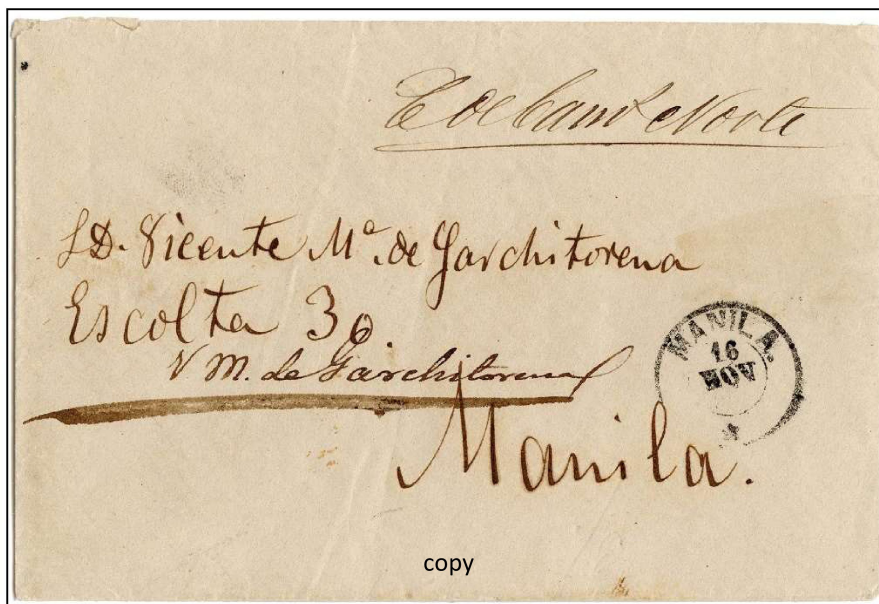 C de Cam.s Norte
S D. Vicente Mª. de Garchitorena
Escolta 30
V M. de Garchitorena
MANILA.
16
NOV
Manila.
copy